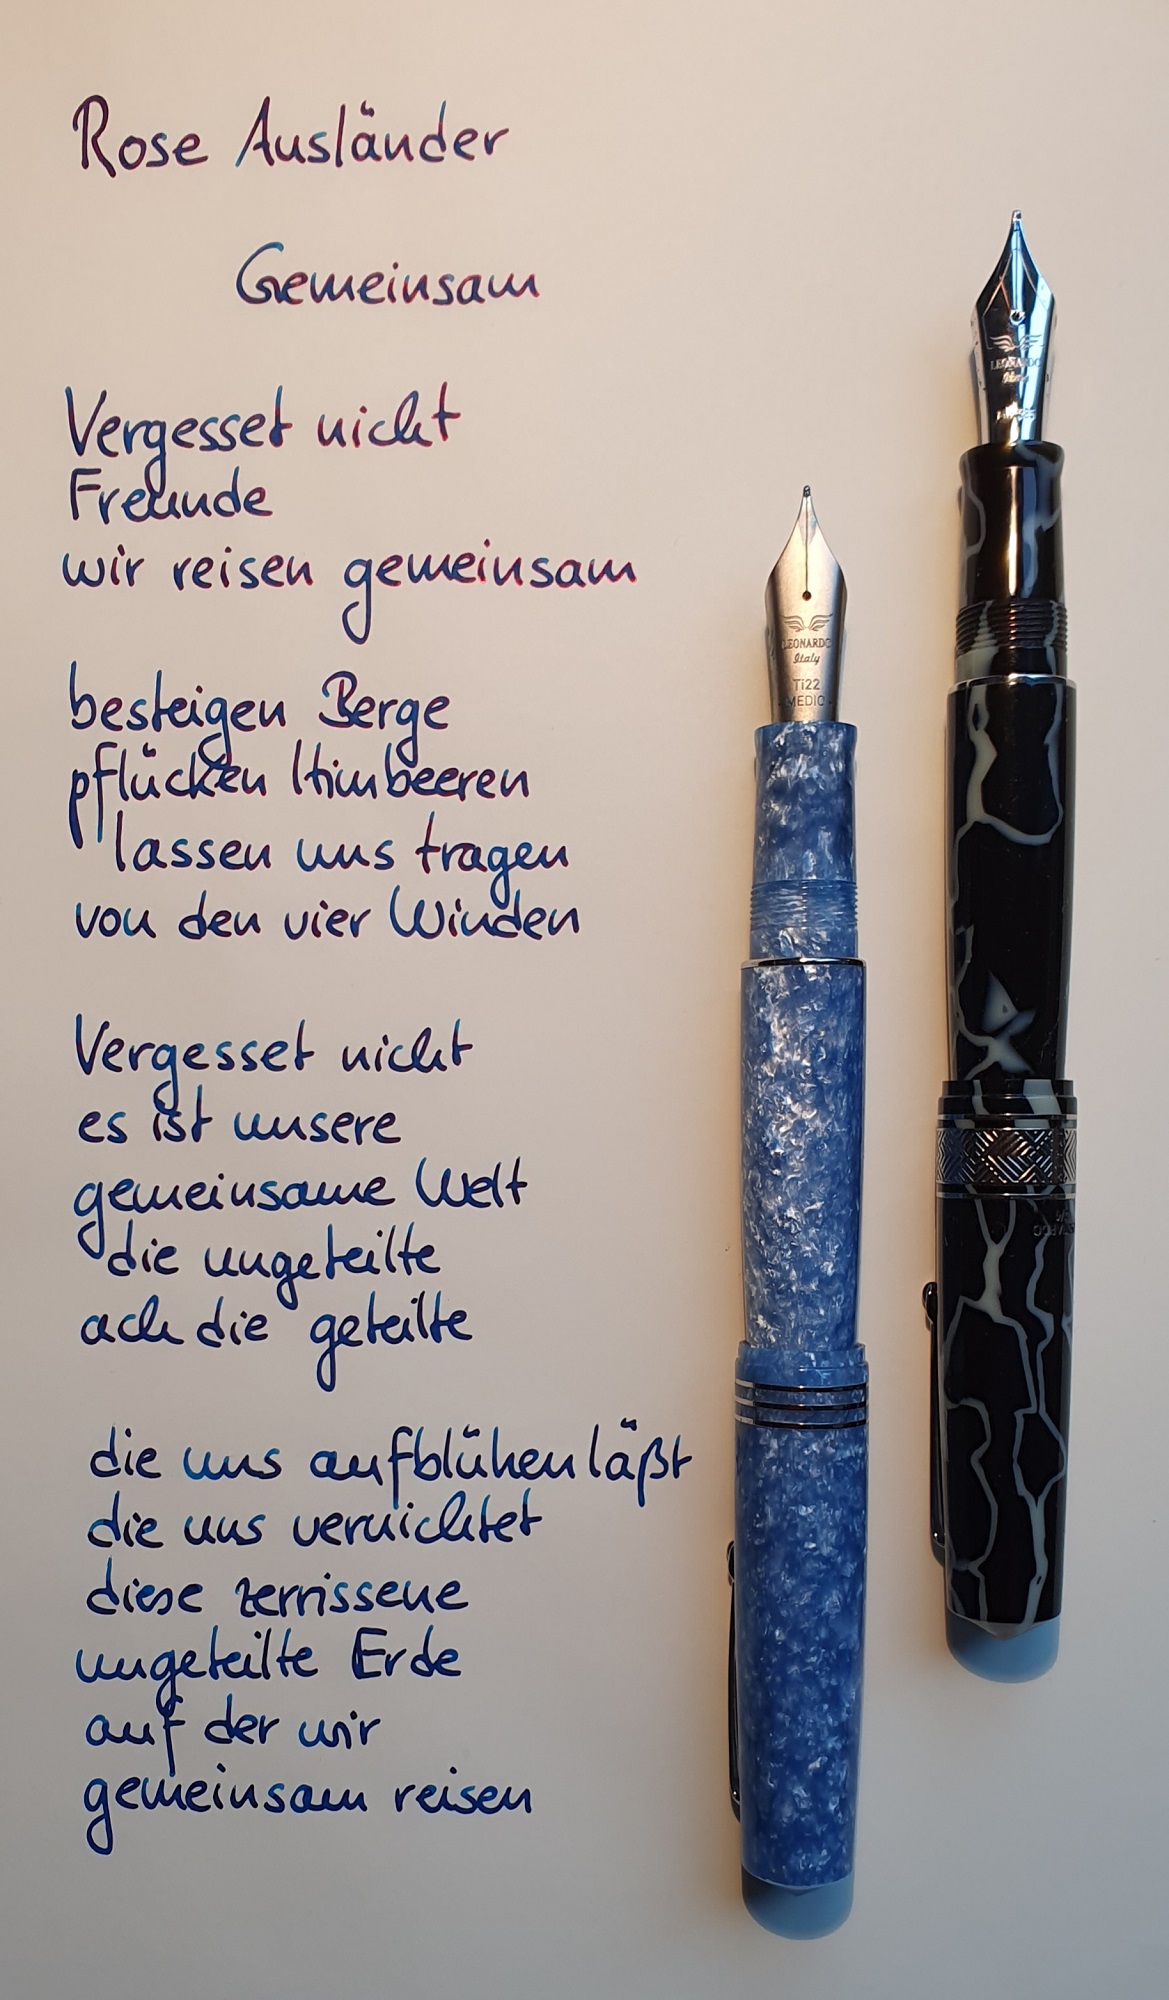 Rose Ausländer
Gemeinsam
Vergesset nicht
Freunde
wir reisen gemeinsam
besteigen Berge
pflücken Himbeeren
lassen uns tragen
von den vier Winden
Vergesset nicht
es ist unsere
gemeinsame Welt
die ungeteilte
ach die geteilte
die uns aufblühen läßt
die uns vernichtet
diese zerrissene
ungeteilte Erde
auf der wir
gemeinsam reisen
LEONARDO
Italy
Ti22
MEDIO
LEONARDO
Italy